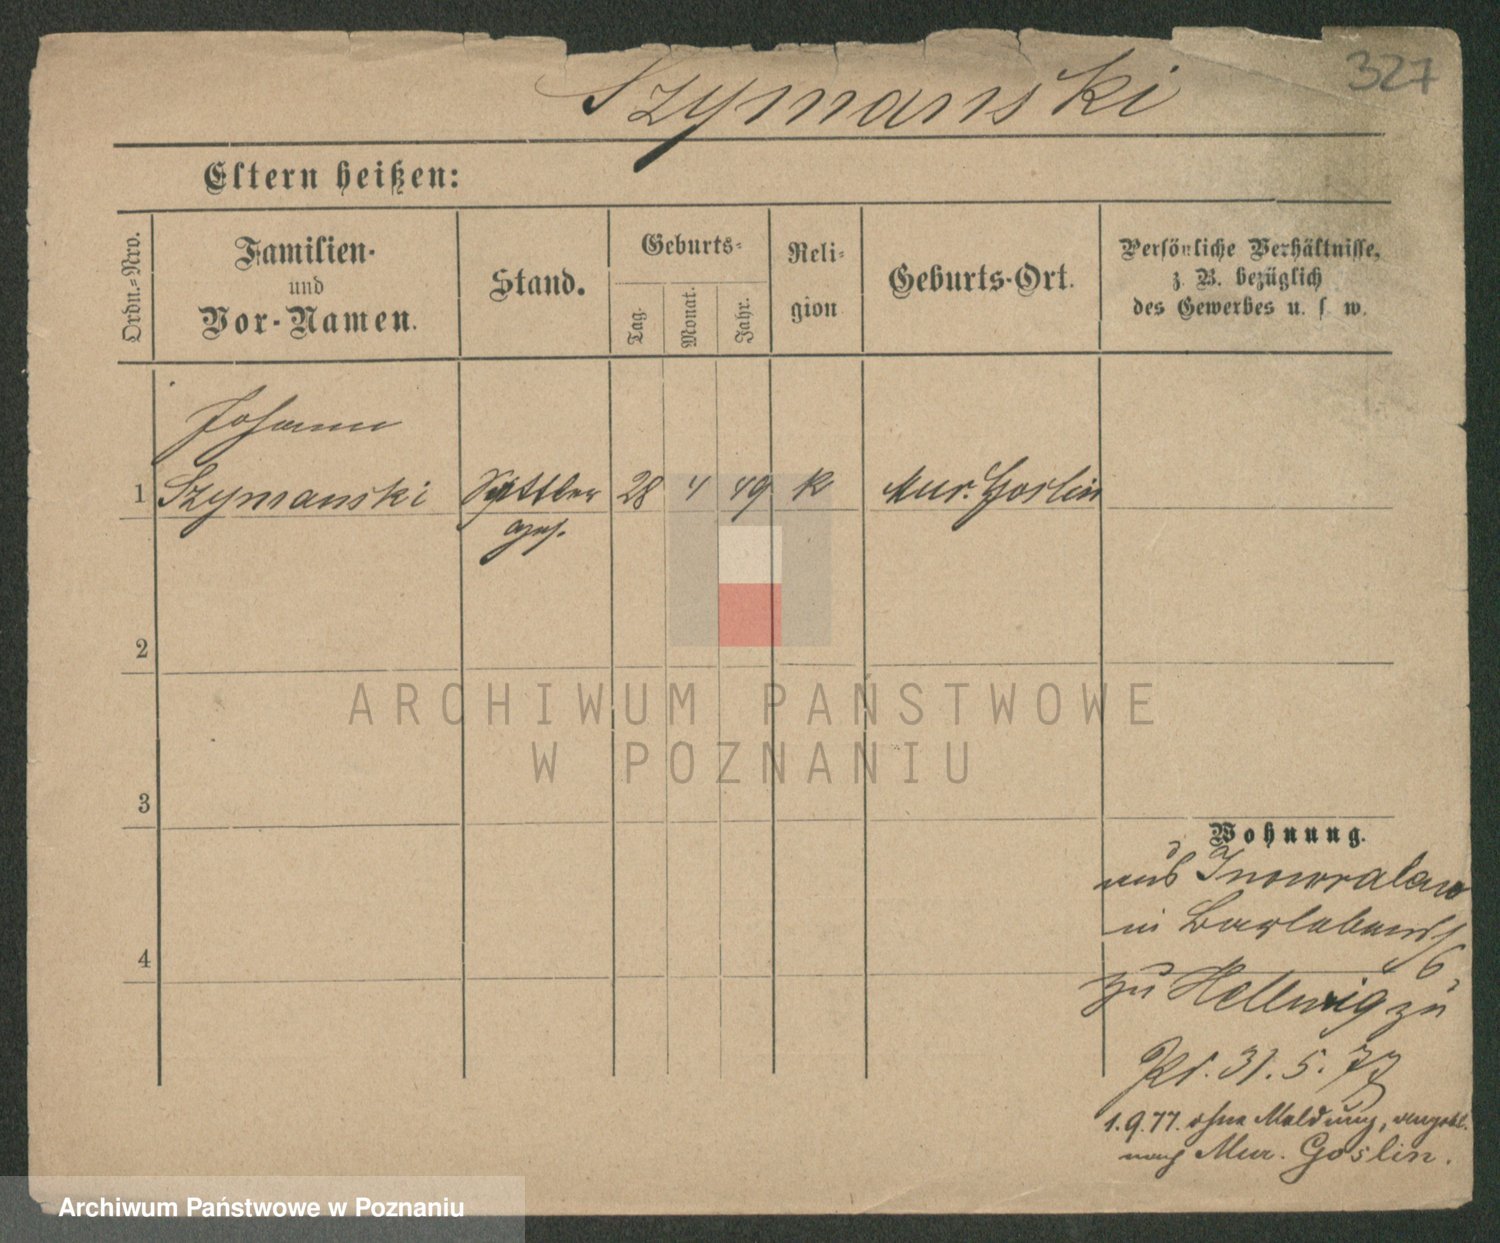 327
Szymanski
Eltern heißen:
Ordn.-Nro.
Familien-
und
Vor-Namen.
Stand.
Geburts-
Tag.
Monat.
Jahr.
Reli-
gion
Geburts-Ort.
Persönliche Verhältnisse,
z. B. bezüglich
des Gewerbes u. s w.
Johann
1 Szymanski Sattler 28 4 49 K Mur. Goslin
2
ARCHIWUM PAŃSTWOWE
W POZNANIU
3
Wohnung.
aus Inowralaw
in
4
6
zu Hellwig zu
31. 5. 77
1.9.77. ohne Meldung, angebl.
nach Mur. Goslin.
Archiwum Państwowe w Poznaniu